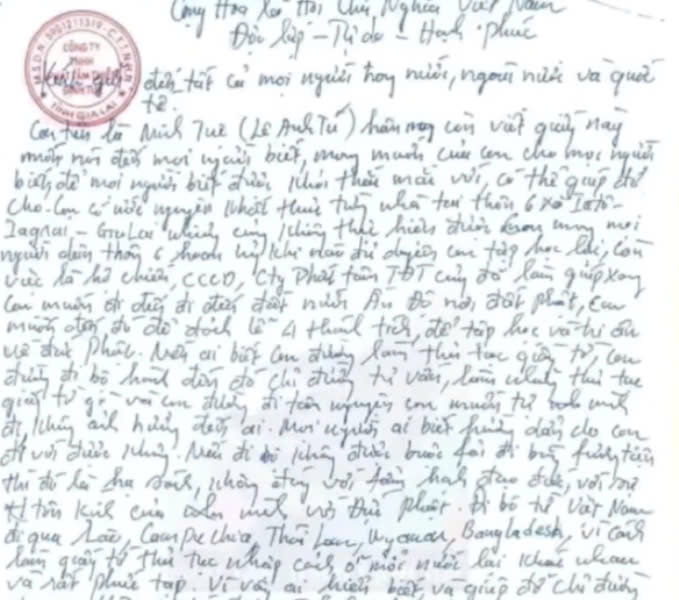 Cộng Hòa Xã Hội Chủ Nghĩa Việt Nam
Độc lập – Tự do – Hạnh phúc
M.S.D.N: 5901211319 - C.T.T.N.H.H
CÔNG TY
TNHH
TỈNH GIA LAI
Kính gửi đến tất cả mọi người trong nước, ngoài nước và quốc
tế.
Con tên là Minh Tuệ (Lê Anh Tú) hôm nay con viết giấy này
muốn nói đến mọi người biết, mong muốn của con cho mọi người
biết, để mọi người biết được khỏi thắc mắc với, có thể giúp đỡ
cho. Con có ước nguyện khất thực từng nhà tại thôn 6 xã Iatô-
Iagrai - Gia Lai nhưng cũng không thực hiện được mong mọi
người dân thôn 6 hoan hỷ khi nào đủ duyên con tập học lại, còn
việc là hộ chiếu, CCCD, Cty Pháp tâm TĐT cũng đã làm giúp xong
Con muốn đi đến đất nước Ấn Độ nơi đất phật, con
muốn đến đó để đảnh lễ 4 thánh tích, để tập học và tri ân
về đức Phật. Nếu ai biết con đường làm thủ tục giấy tờ, con
đường đi bộ hành đến đó chỉ đường tư vấn, làm những thủ tục
giấy tờ gì với con đường đi tâm nguyện con muốn tự mình
đi, không ảnh hưởng đến ai. Mọi người ai biết hướng dẫn cho con
đi với được không. Nếu đi bộ không được buộc phải đi bằng phương tiện
thì đó là hạ sách, không đúng với tâm hạnh đạo đức, với sự
tôn kính của mình với Đức Phật. Đi bộ từ Việt Nam
đi qua Lào, Campuchia, Thái Lan, Myanmar, Bangladesh, vì cách
làm giấy tờ thủ tục nhập cảnh ở mỗi nước lại khác nhau
và rất phức tạp. Vì vậy ai hiểu biết, và giúp đỡ chỉ đường